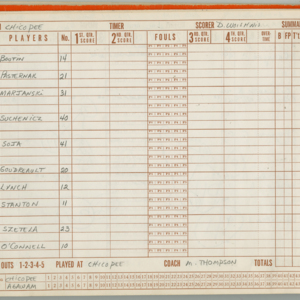 CHICOPEE TIMER SCORER D. WOISHNIS SUMMA
PLAYERS No. 1ST. QTR. SCORE 2ND. QTR. SCORE FOULS 3RD. QTR. SCORE 4TH. QTR. SCORE OVER TIME B FP T
BOUTIN 14
PASTERNAK 21
MARJANSKI 31
SOCHENICZ 40
SOJA 41
GOUDREAULT 20
LYNCH 12
STANTON 11
SZETELA 23
O'CONNELL 10
OUTS 1-2-3-4-5 PLAYED AT CHICOPEE COACH M. THOMPSON TOTALS
CHICOPEE
AGAWAM